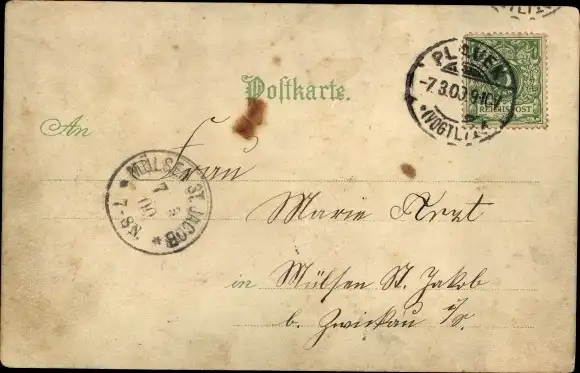 PLAUEN
-7.3.00.9-10.V.
*(VOGTL.)
REICHSPOST
Postkarte.
An
Frau
MÜLSEN ST. JACOB
7 3 00
* N8-7 *
Marie Arzt
in Mülsen St. Jakob
b. Zwickau i/S.